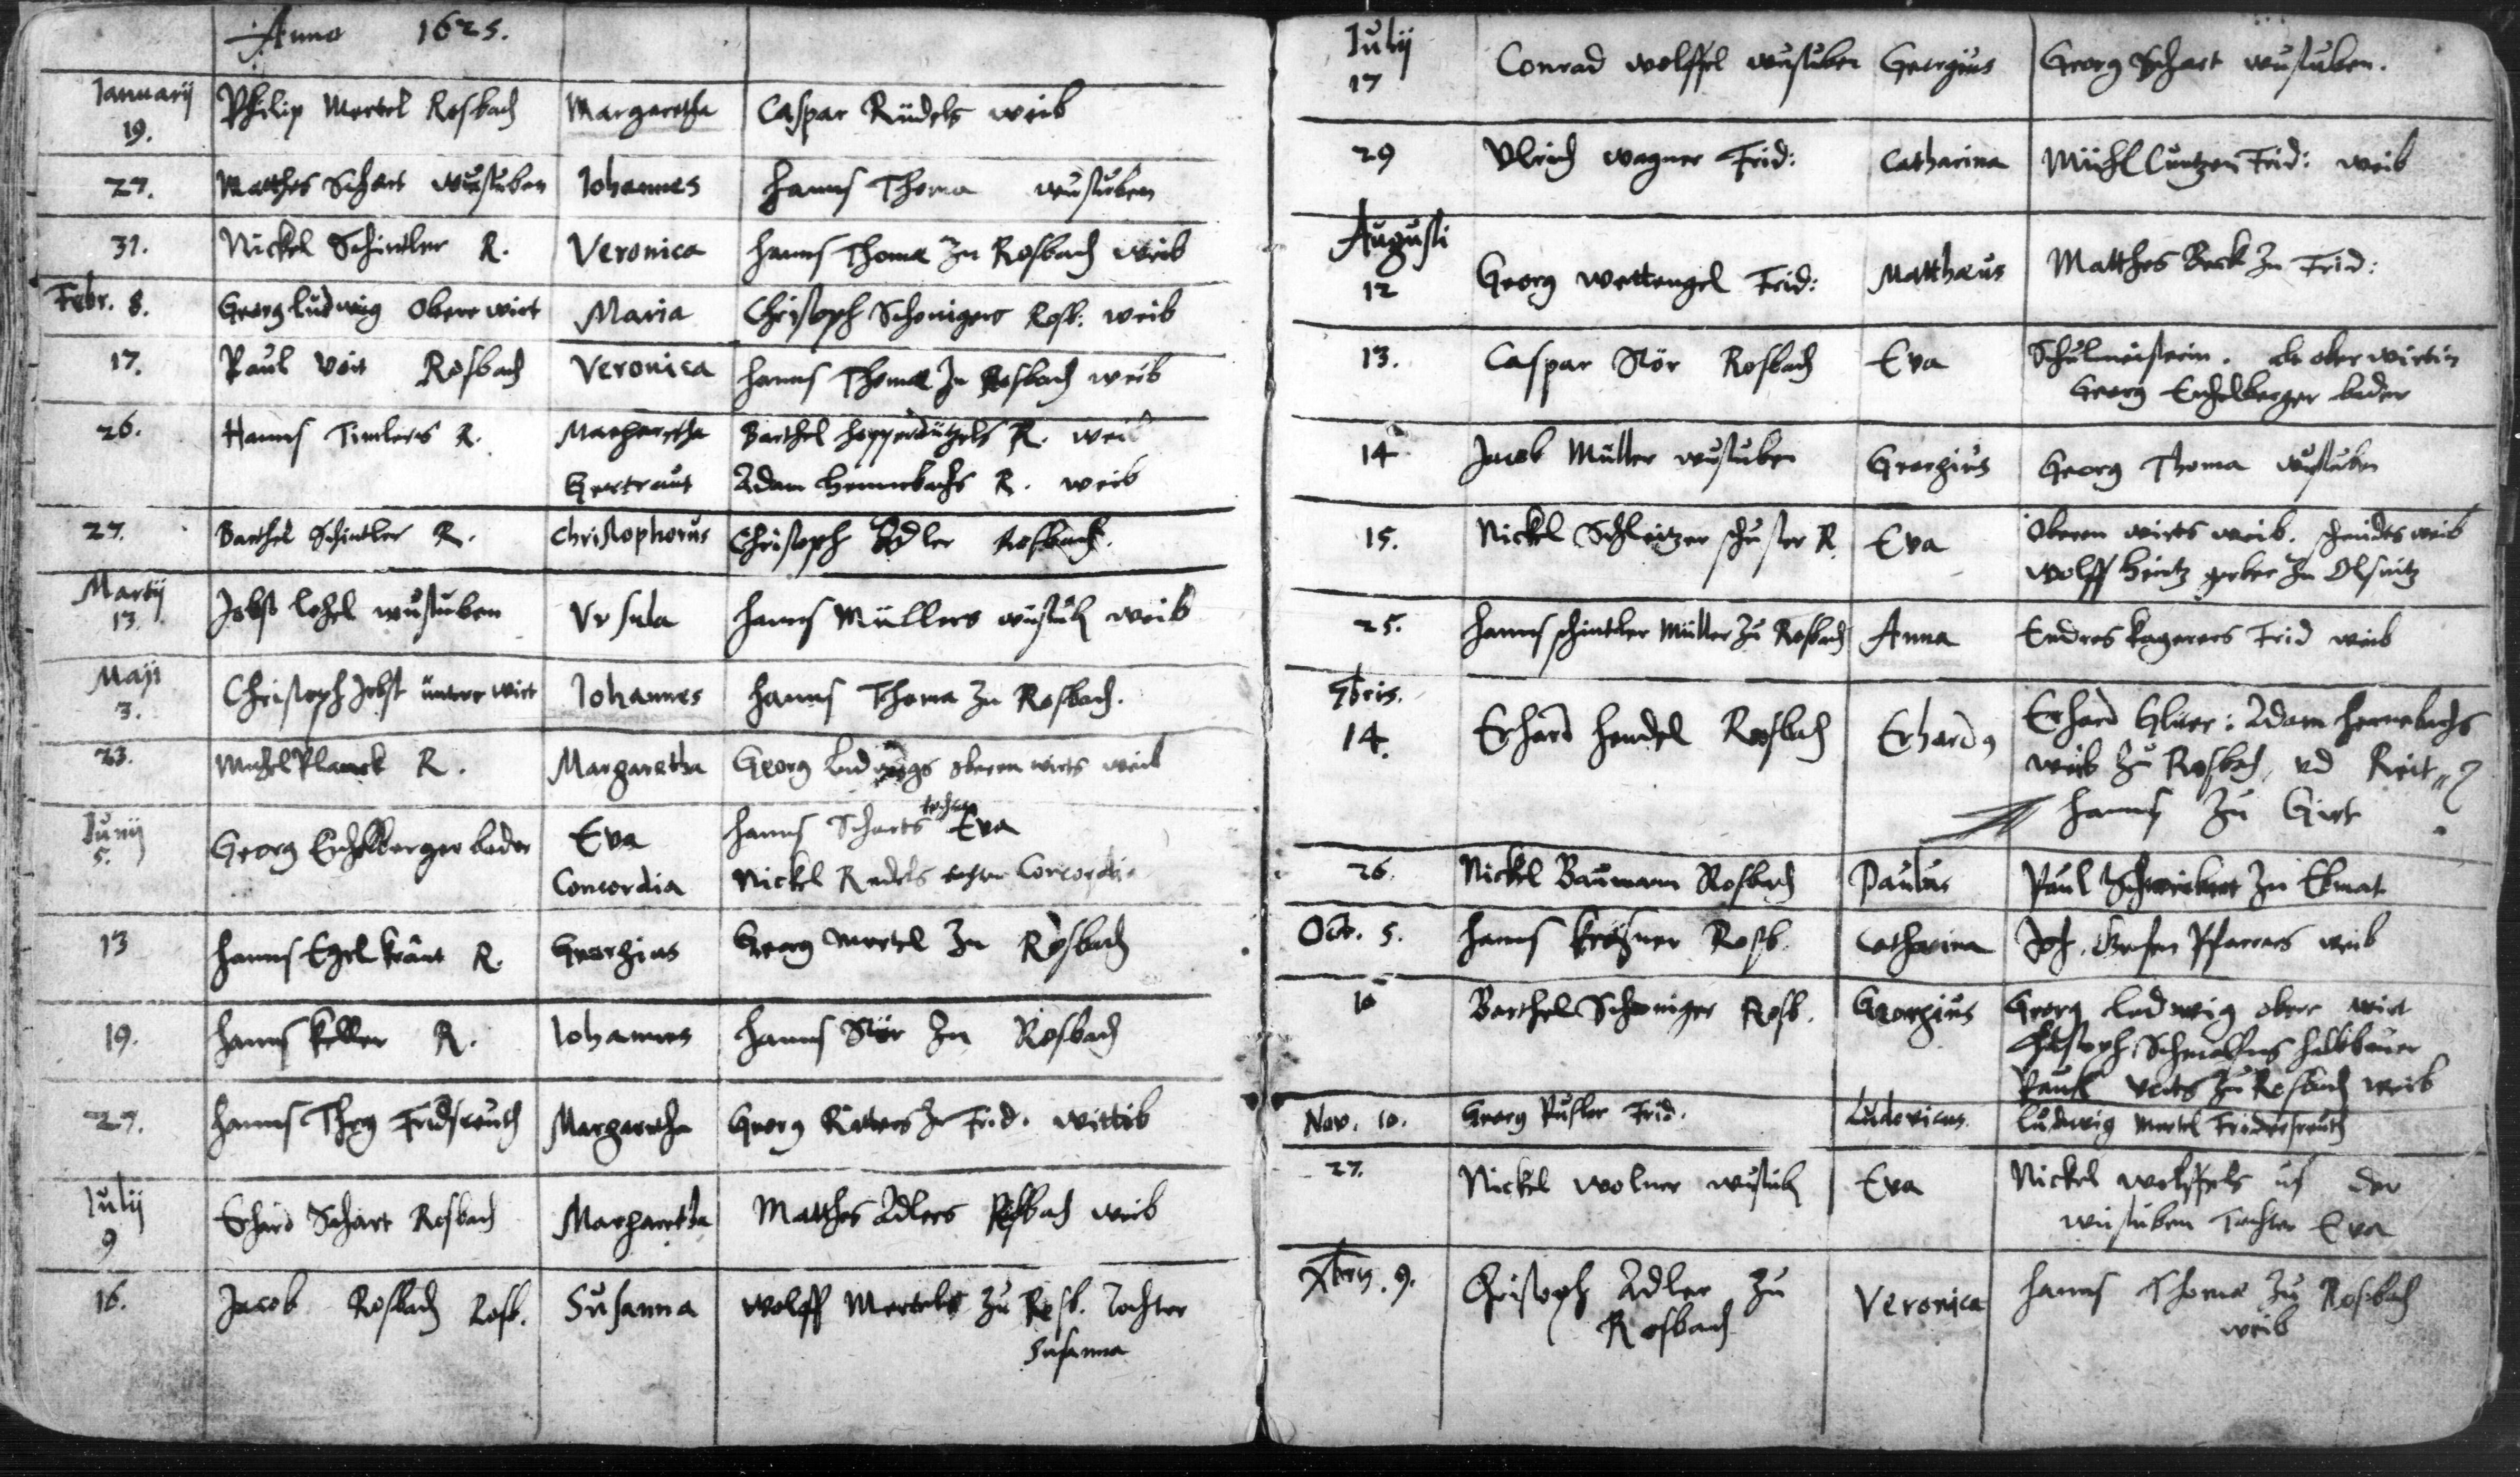 Anno 1625.
Januarij
19. Philip Mertel Rosbach Margaretha Caspar Rüdels weib
27. Matthes Schart wustuben Johannes Hanns Thoma wustuben
31. Nickel Schintler R. Veronica Hanns Thoma zu Rosbach weib
Febr. 8. Georg Ludwig Obere wirt Maria Christoph Schenigers Rosb: weib
17. Paul Veit Rosbach Veronica Hanns Thoma zu Rosbach weib
26. Hanns Timlers R. Margaretha Barthel R. weib
Gertraut Adam R. weib
27. Barthel Schintler R. Christophorus Christoph Adler Rosbach.
Martij
13. Jobst wustuben Ursula Hanns Müllers wustub weib
Maji
3. Christoph Jobst untere wirt Johannes Hanns Thoma zu Rosbach.
23. Michel Planck R. Margaretha Georg Ludwigs oberen wirts weib
Junij
5. Georg bader Eva Hanns Scharts tochter Eva
Concordia Nickel Rudels tochter Concordia
13 Hanns R. Georgius Georg Mertel zu Rosbach
19. Hanns Keller R. Johannes Hanns Stör zu Rosbach
27. Hanns Fridsreuth Margaretha Georg zu Frid. wittib
Julij
9 Erhard Schart Rosbach Margaretha Matthes Adlers Rosbach weib
16. Jacob Rosbach Rosb. Susanna Wolff Mertels zu Rosb. Tochter
Susanna
Julij
17 Conrad Wolffel wustuben Georgius Georg Schart wustuben.
29 Ulrich Wagner Frid: Catharina Mühl Cuntzen Frid: weib
Augusti
12 Georg Wettengel Frid: Matthæus Matthes Beck zu Frid:
13. Caspar Stör Rosbach Eva Schulmeisterin. ober wirtin
Georg bader
14 Jacob Müller wustuben Georgius Georg Thoma wustuben
15. Nickel Schleitzer schuster R. Eva Oberen wirts weib. weib
Wolff zu Olsnitz
25. Hanns Schintler Müller zu Rosbach Anna Endres Frid weib
7bris.
14. Erhard Hendel Rosbach Erhard9 Erhard Adam
weib zu Rosbach, ud
Hanns zu
26. Nickel Baumann Rosbach Paulus Paul zu
Octr. 5. Hanns Rosb. Catharina Joh. Pfarrers weib
10 Barthel Scheniger Rosb. Georgius Georg Ludwig obere wirt
Christoph
Paul Veits zu Rosbach weib
Nov. 10. Georg Frid. Ludovicus Ludwig Mertel Fridersreuth
27. Nickel Wolner wustub Eva Nickel Wolffels uf der
wustuben Tochter Eva
Xbris. 9. Christoph Adler zu Veronica Hanns Thoma zu Rosbach
Rosbach weib